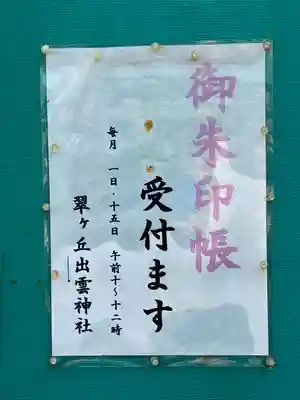 御朱印帳
受付ます
毎月 一日・十五日 午前十〜十二時
翠ヶ丘出雲神社